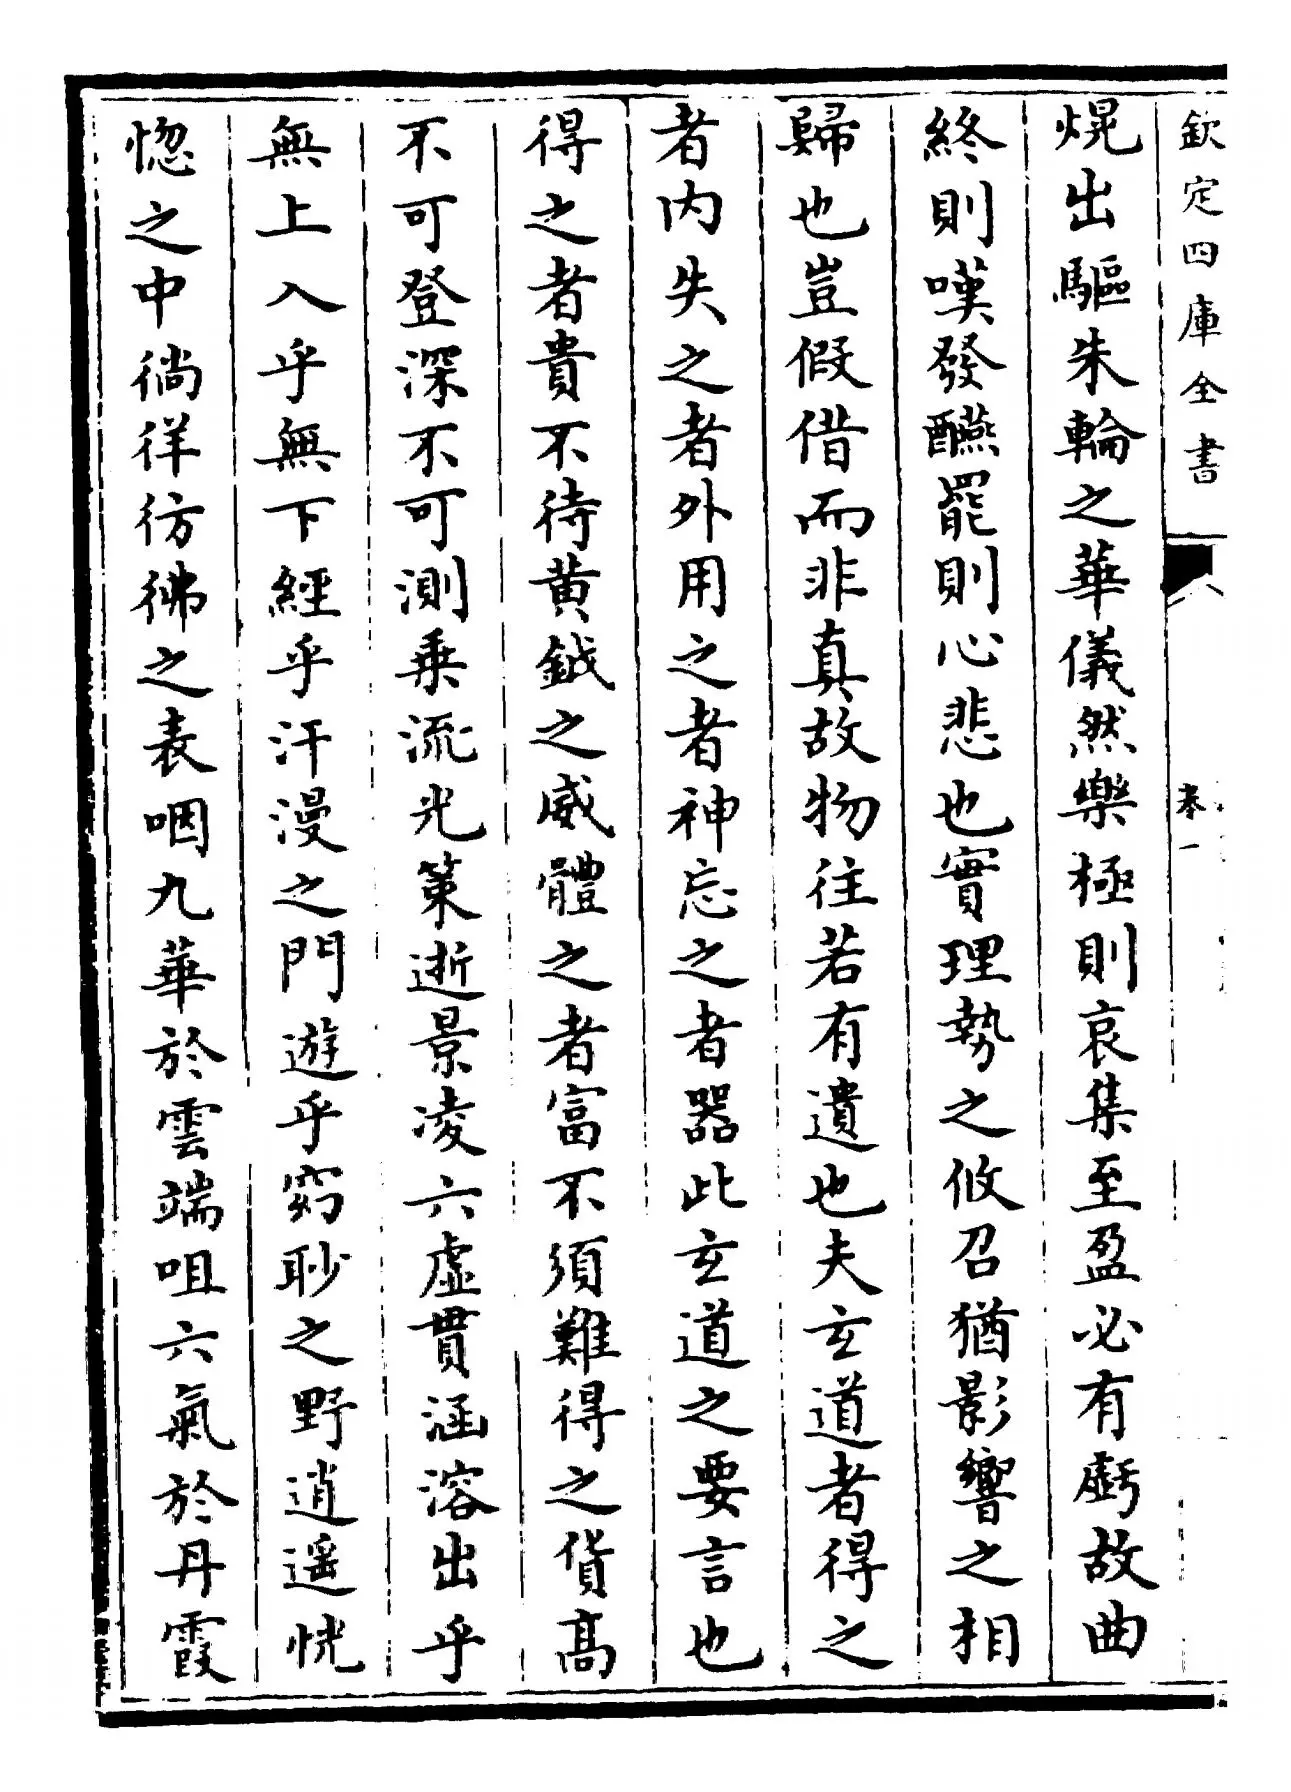 欽定四庫全書
卷一
熀出驅朱輪之華儀然樂極則哀集至盈必有虧故曲
終則嘆發醼罷則心悲也實理勢之攸召猶影響之相
歸也豈假借而非真故物往若有遺也夫玄道者得之
者内失之者外用之者神忘之者器此玄道之要言也
得之者貴不待黄鉞之威體之者富不須難得之貨高
不可登深不可測乗流光策逝景凌六虚貫涵溶出乎
無上入乎無下經乎汗漫之門遊乎窈眇之野逍遥恍
惚之中徜徉彷彿之表咽九華於雲端咀六氣於丹霞